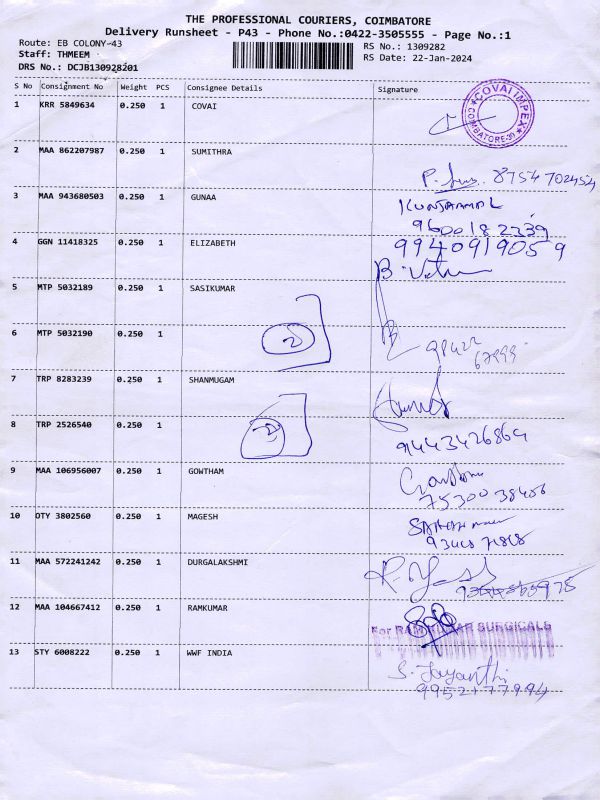 THE PROFESSIONAL COURIERS, COIMBATORE
Delivery Runsheet - P43 - Phone No.:0422-3505555 - Page No.:1
Route: EB COLONY-43
Staff: THMEEM
DRS No.: DCJB130928201
RS No.: 1309282
RS Date: 22-Jan-2024
S No Consignment No Weight PCS Consignee Details Signature
1 KRR 5849634 0.250 1 COVAI
COVAI IMPEX
COIMBATORE-30
2 MAA 862207987 0.250 1 SUMITHRA
8754702454
3 MAA 943680503 0.250 1 GUNAA
9600182339
4 GGN 11418325 0.250 1 ELIZABETH
9940919059
5 MTP 5032189 0.250 1 SASIKUMAR
6 MTP 5032190 0.250 1
2
98422
7 TRP 8283239 0.250 1 SHANMUGAM
8 TRP 2526540 0.250 1
2
9443426864
9 MAA 106956007 0.250 1 GOWTHAM
7530038456
10 OTY 3802560 0.250 1 MAGESH
11 MAA 572241242 0.250 1 DURGALAKSHMI
12 MAA 104667412 0.250 1 RAMKUMAR
For RAM KUMAR SURGICALS
13 STY 6008222 0.250 1 WWF INDIA
S. Jayanthi
9952177994